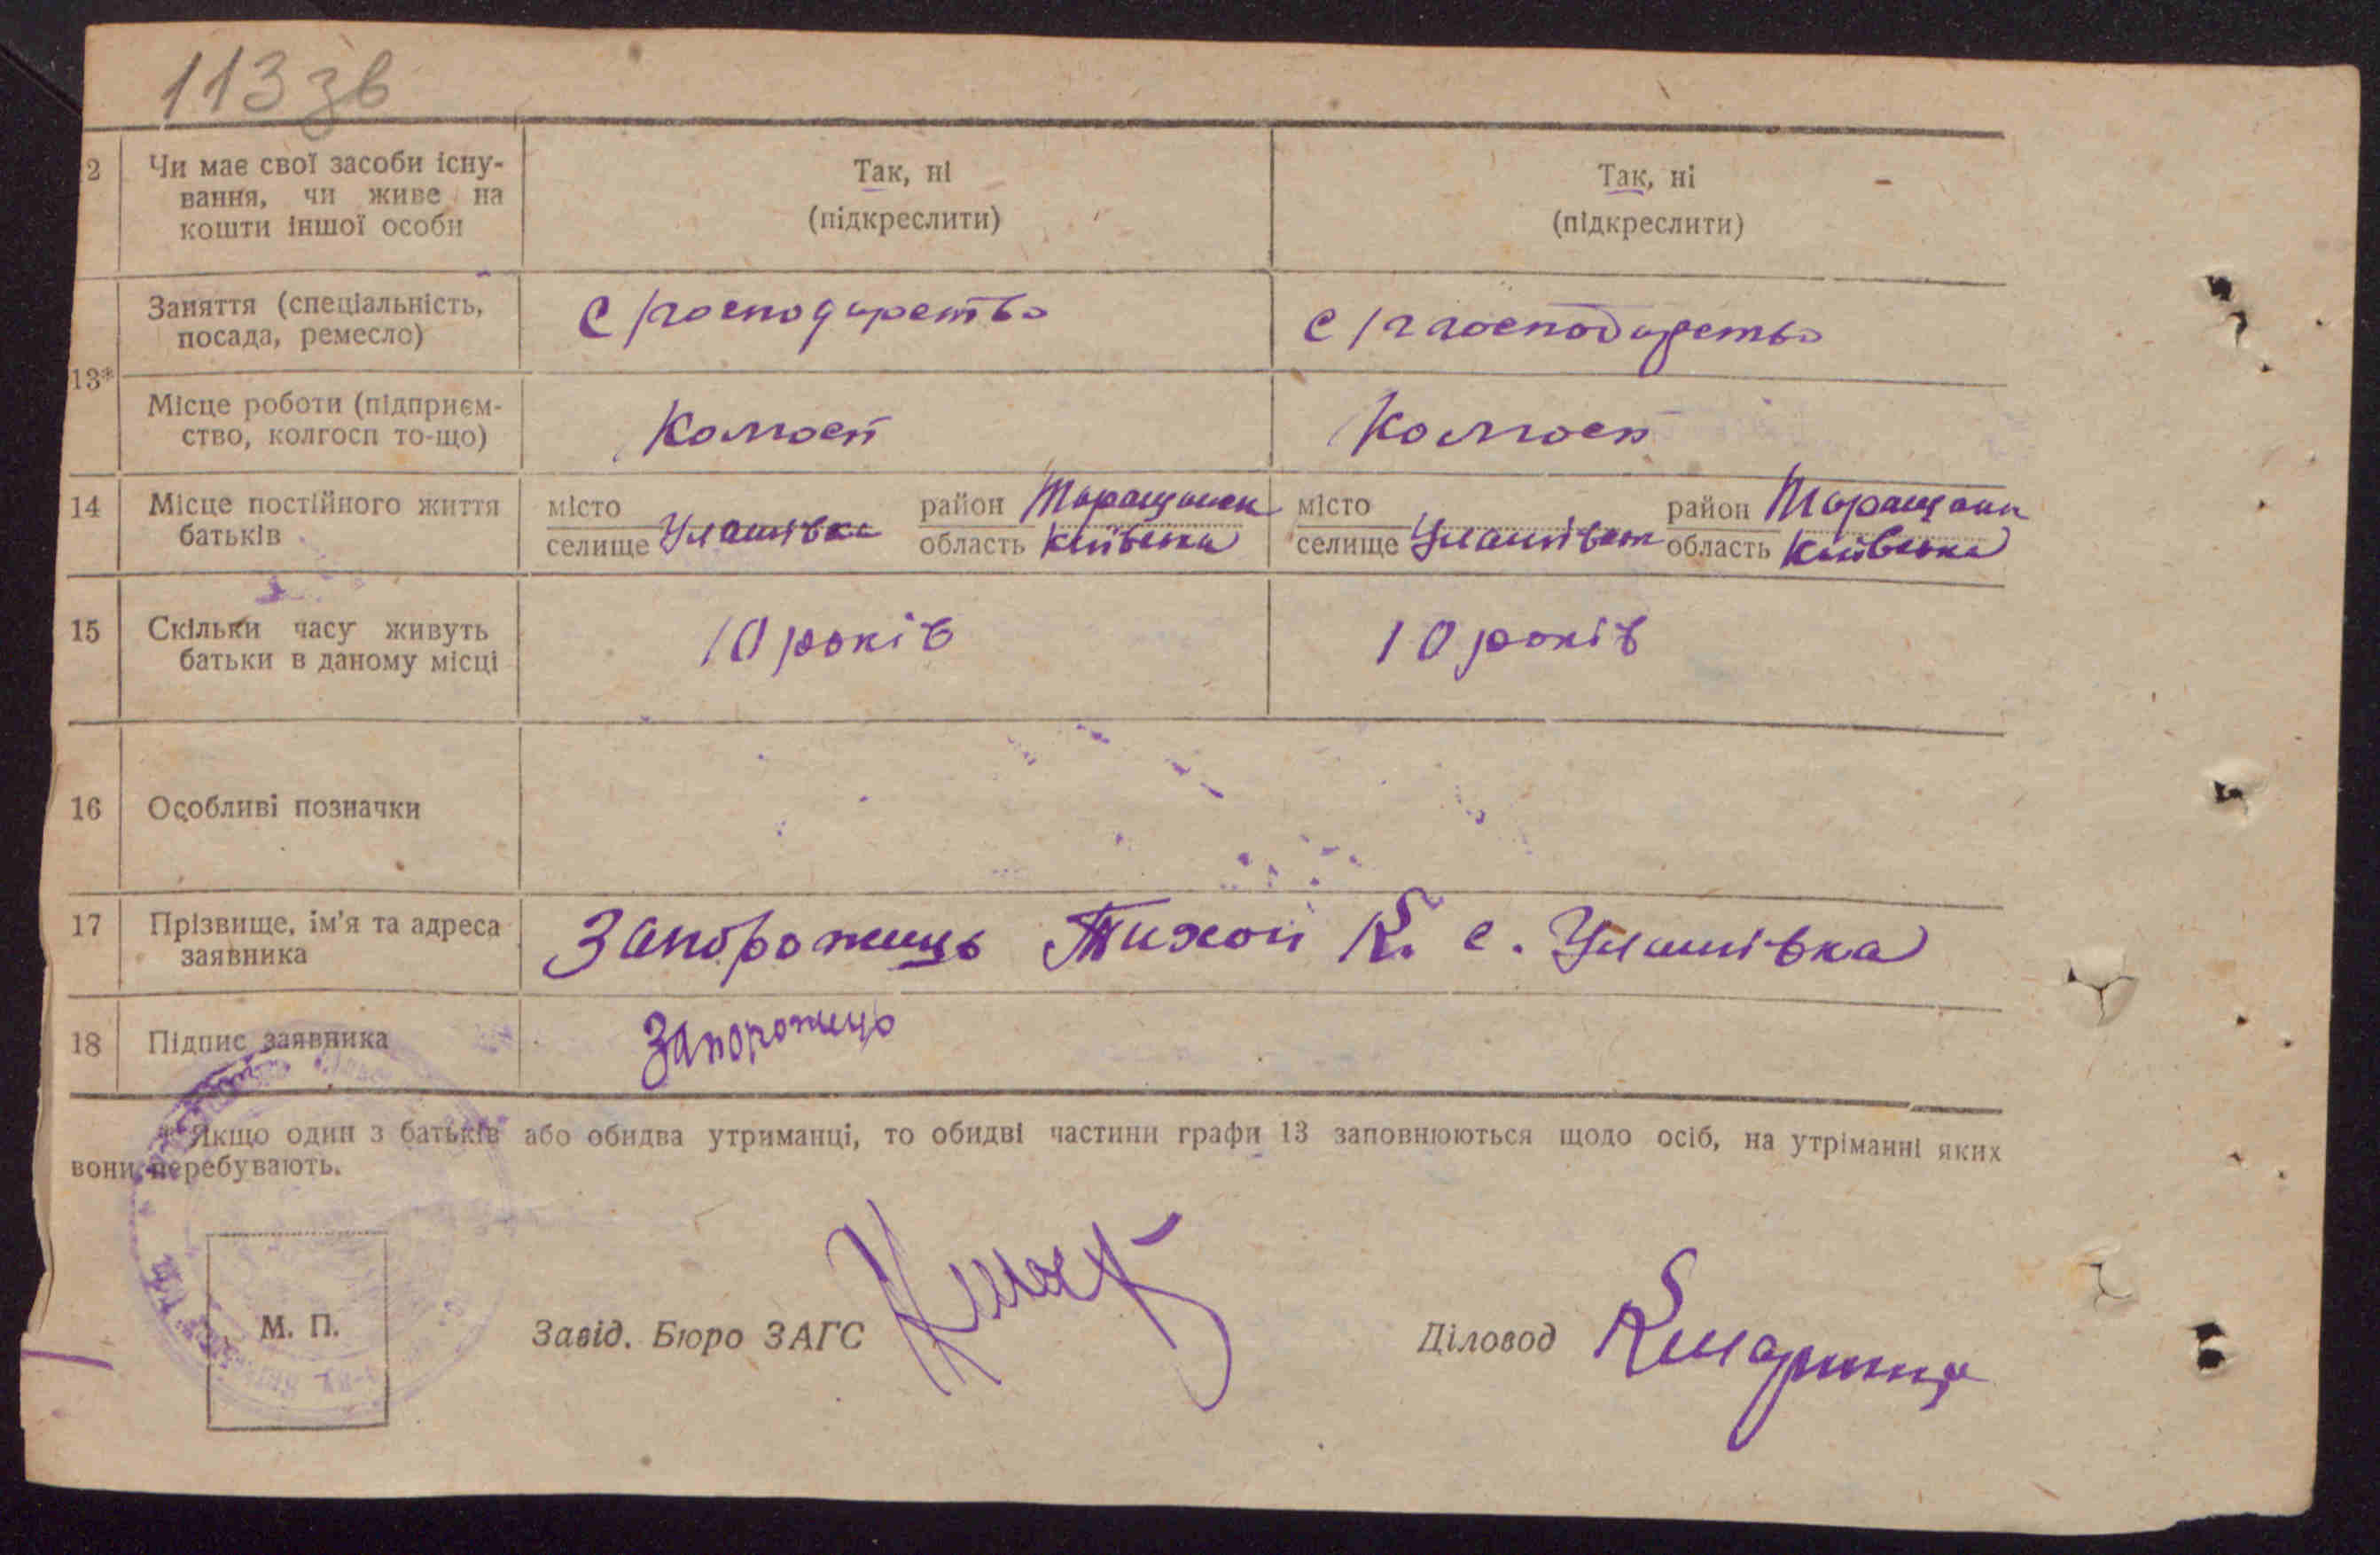 113 зв
2 Чи має свої засоби існу- Так, ні Так, ні
вання, чи живе на
кошти іншої особи (підкреслити) (підкреслити)
Заняття (спеціальність, с/господарство с/г господарство
посада, ремесло)
13*
Місце роботи (підприєм- Колгосп Колгосп
ство, колгосп то-що)
14 Місце постійного життя місто район Таращанск місто район Таращанск
батьків селище Улашівка область Київська селище Улашівка область Київська
15 Скільки часу живуть 10 років 10 років
батьки в даному місці
16 Особливі позначки
17 Прізвище, ім'я та адреса Запорожець Тихон К. с. Улашівка
заявника
18 Підпис заявника Запорожець
* Якщо один з батьків або обидва утриманці, то обидві частини графи 13 заповнюються щодо осіб, на утріманні яких
вони перебувають.
М. П. Завід. Бюро ЗАГС Діловод